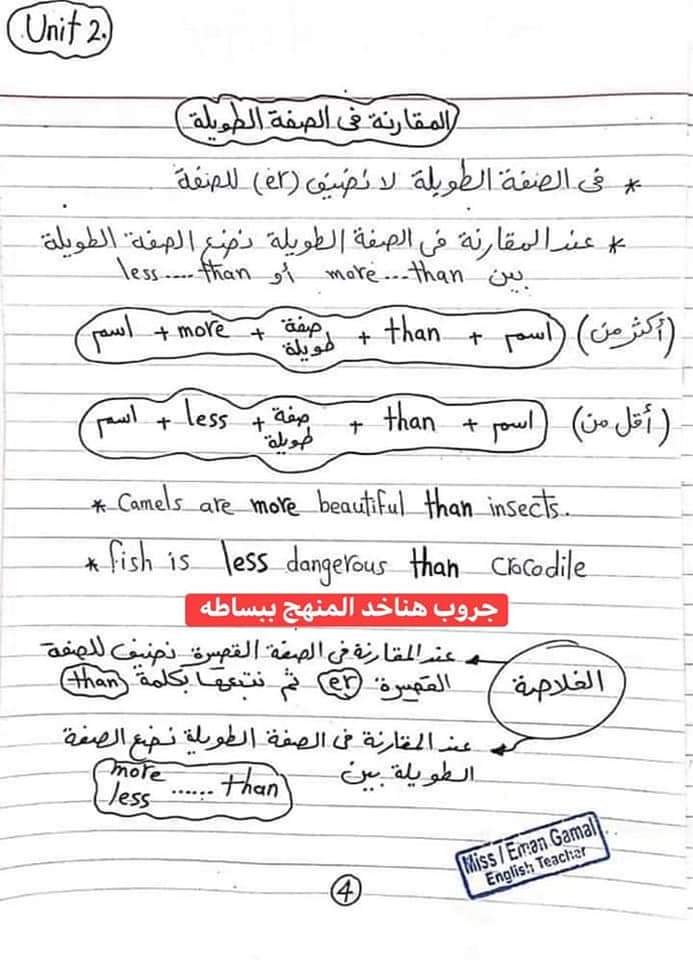 Unit 2.
المقارنة فى الصفة الطويلة
* فى الصفة الطويلة لا نضيف (er) للصفة
* عند المقارنة فى الصفة الطويلة نضع الصفة الطويلة
بين more...than أو less.....than
(أكثر من) اسم + more + صفة طويلة + than + اسم
(أقل من) اسم + less + صفة طويلة + than + اسم
* Camels are more beautiful than insects.
* fish is less dangerous than crocodile
جروب هناخد المنهج ببساطه
الخلاصة
عند المقارنة فى الصفة القصيرة نضيف للصفة
القصيرة er ثم نتبعها بكلمة than
عند المقارنة فى الصفة الطويلة نضع الصفة
الطويلة بين
more
less ...... than
Miss / Eman Gamal
English Teacher
4